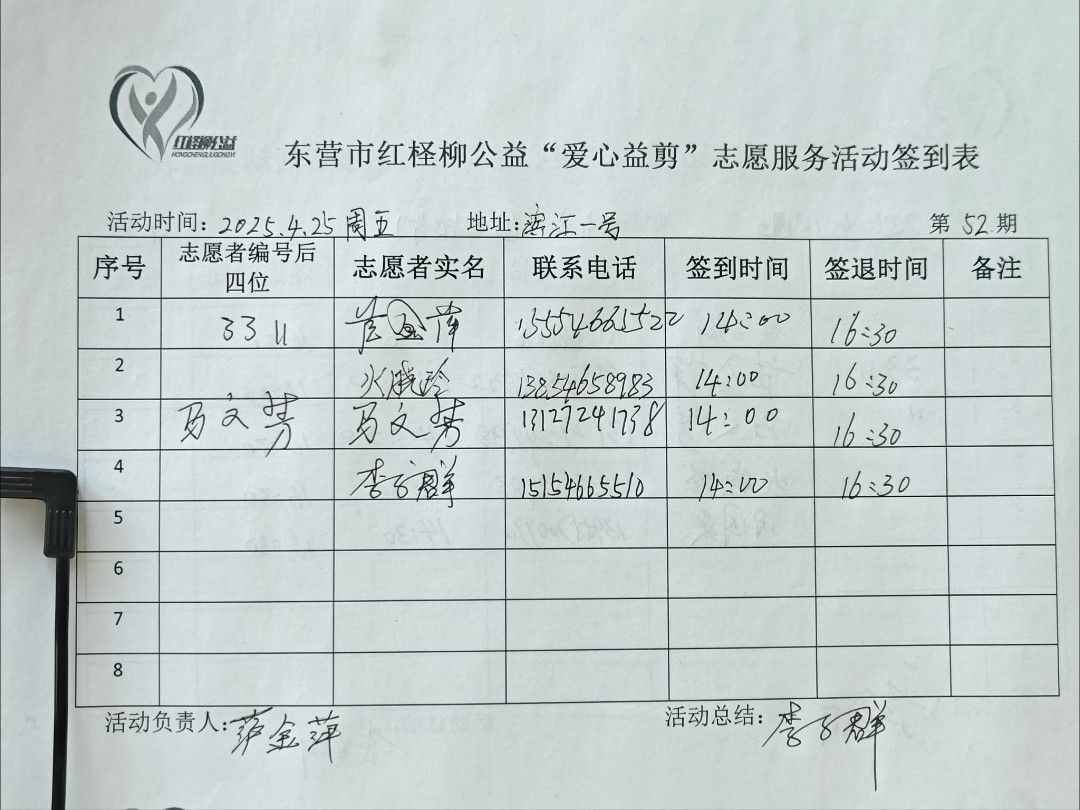 红柽柳公益
HONGCHENGLIUGONGYI
东营市红柽柳公益“爱心益剪”志愿服务活动签到表
活动时间: 2025.4.25 周五 地址: 滨江一号 第 52 期
序号 志愿者编号后四位 志愿者实名 联系电话 签到时间 签退时间 备注
1 3311 13554661522 14:00 16:30
2 13854658983 14:00 16:30
3 马文芳 马文芳 13127241738 14:00 16:30
4 李子群 15154665510 14:00 16:30
5
6
7
8
活动负责人: 金萍 活动总结: 李子群